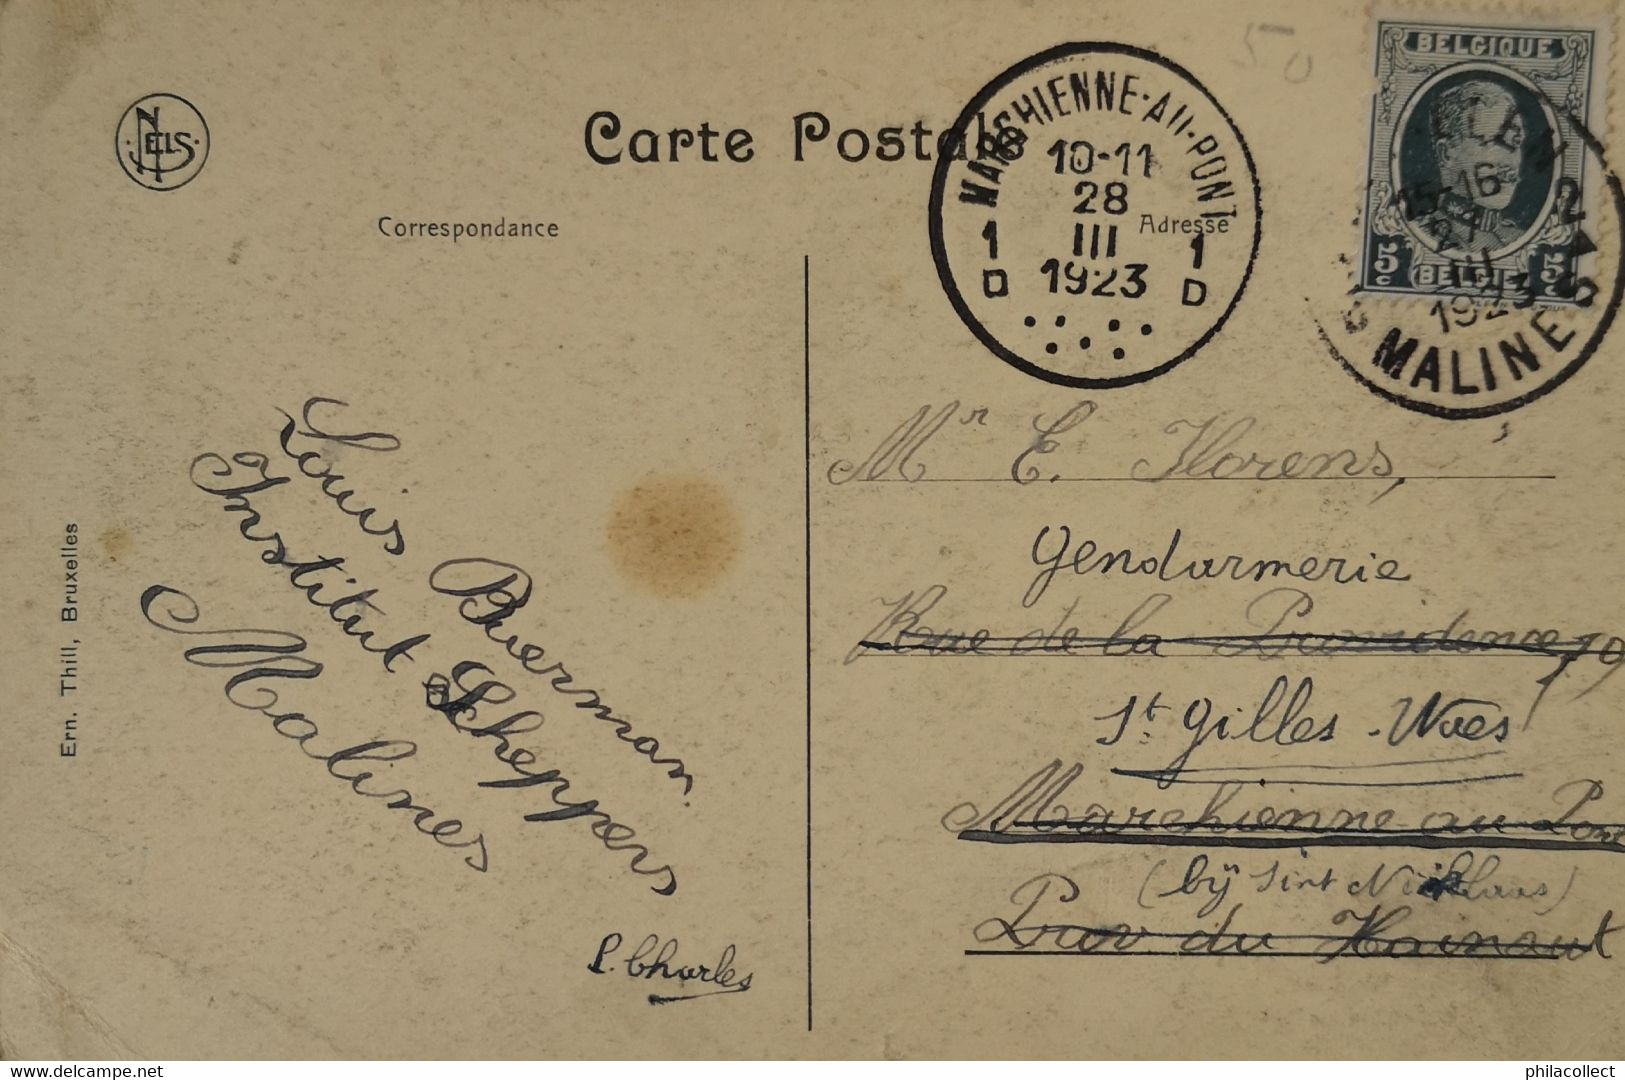 NELS
Carte Postale
Correspondance
Adresse
Ern. Thill, Bruxelles
50
MARCHIENNE-AU-PONT
10-11
28
III
1923
1 1
D D
BELGIQUE
5 c BELGIË 5 c
15-16
27
III
1923
2
MALINES
Louis Buerman.
Institut Scheppers
Malines
L. Charles
Mr E. Florens,
Gendarmerie
Rue de la Providence, 19
St Gilles-Waes
Marchienne au Pont
(bij Sint Niklaas)
Prov du Hainaut
philacollect